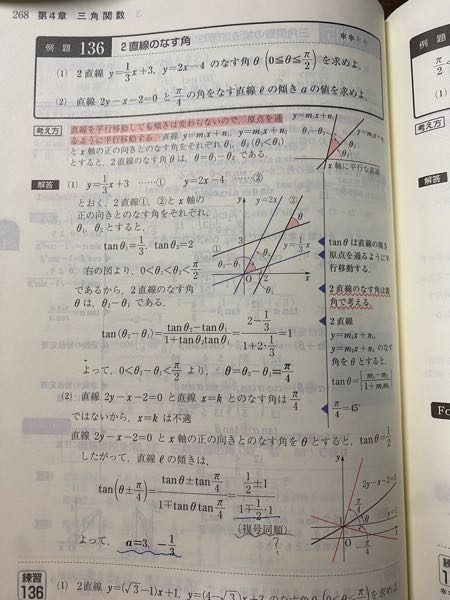 268 第4章 三角関数
例題 136 2直線のなす角 ****
(1) 2直線 y=1/3x+3, y=2x-4 のなす角 θ (0≦θ≦π/2) を求めよ.
(2) 直線 2y-x-2=0 と π/4 の角をなす直線 ℓ の傾き a の値を求めよ.
考え方 直線を平行移動しても傾きは変わらないので, 原点を通
るように平行移動する. 直線 y=m₁x+n₁, y=m₂x+n₂
と x 軸の正の向きとのなす角をそれぞれ θ₁, θ₂ (θ₁<θ₂)
とすると, 2直線のなす角 θ は, θ=θ₂-θ₁ である.
x 軸に平行な直線
解答 (1) y=1/3x+3 ……① y=2x-4 ……②
とおく. 2直線①, ②と x 軸の
正の向きとのなす角をそれぞれ,
θ₁, θ₂ とすると,
tanθ₁=1/3, tanθ₂=2
右の図より, 0<θ₁<θ₂<π/2
であるから, 2直線のなす角
θ は, θ₂-θ₁ である.
tan(θ₂-θ₁)=(tanθ₂-tanθ₁)/(1+tanθ₂tanθ₁)=(2-1/3)/(1+2・1/3)=1
よって, 0<θ₂-θ₁<π/2 より, θ=θ₂-θ₁=π/4
y=2x
y=1/3x
tanθ は直線の傾き
原点を通るように平
行移動する.
2直線のなす角は鋭
角で考える.
2直線
y=m₁x+n₁,
y=m₂x+n₂ のなす
角を θ とすると,
tanθ=|(m₁-m₂)/(1+m₁m₂)|
(2) 直線 2y-x-2=0 と x=k とのなす角は π/4
ではないから, x=k は不適
π/4=45°
直線 2y-x-2=0 と x 軸の正の向きとのなす角を θ とすると, tanθ=1/2
したがって, 直線 ℓ の傾きは,
tan(θ±π/4)=(tanθ±tanπ/4)/(1∓tanθtanπ/4)=(1/2±1)/(1∓1/2・1)
(複号同順)
?
よって, a=3, -1/3
2y-x-2=0
練習 136 (1) 2直線 y=(√3-1)x+1,